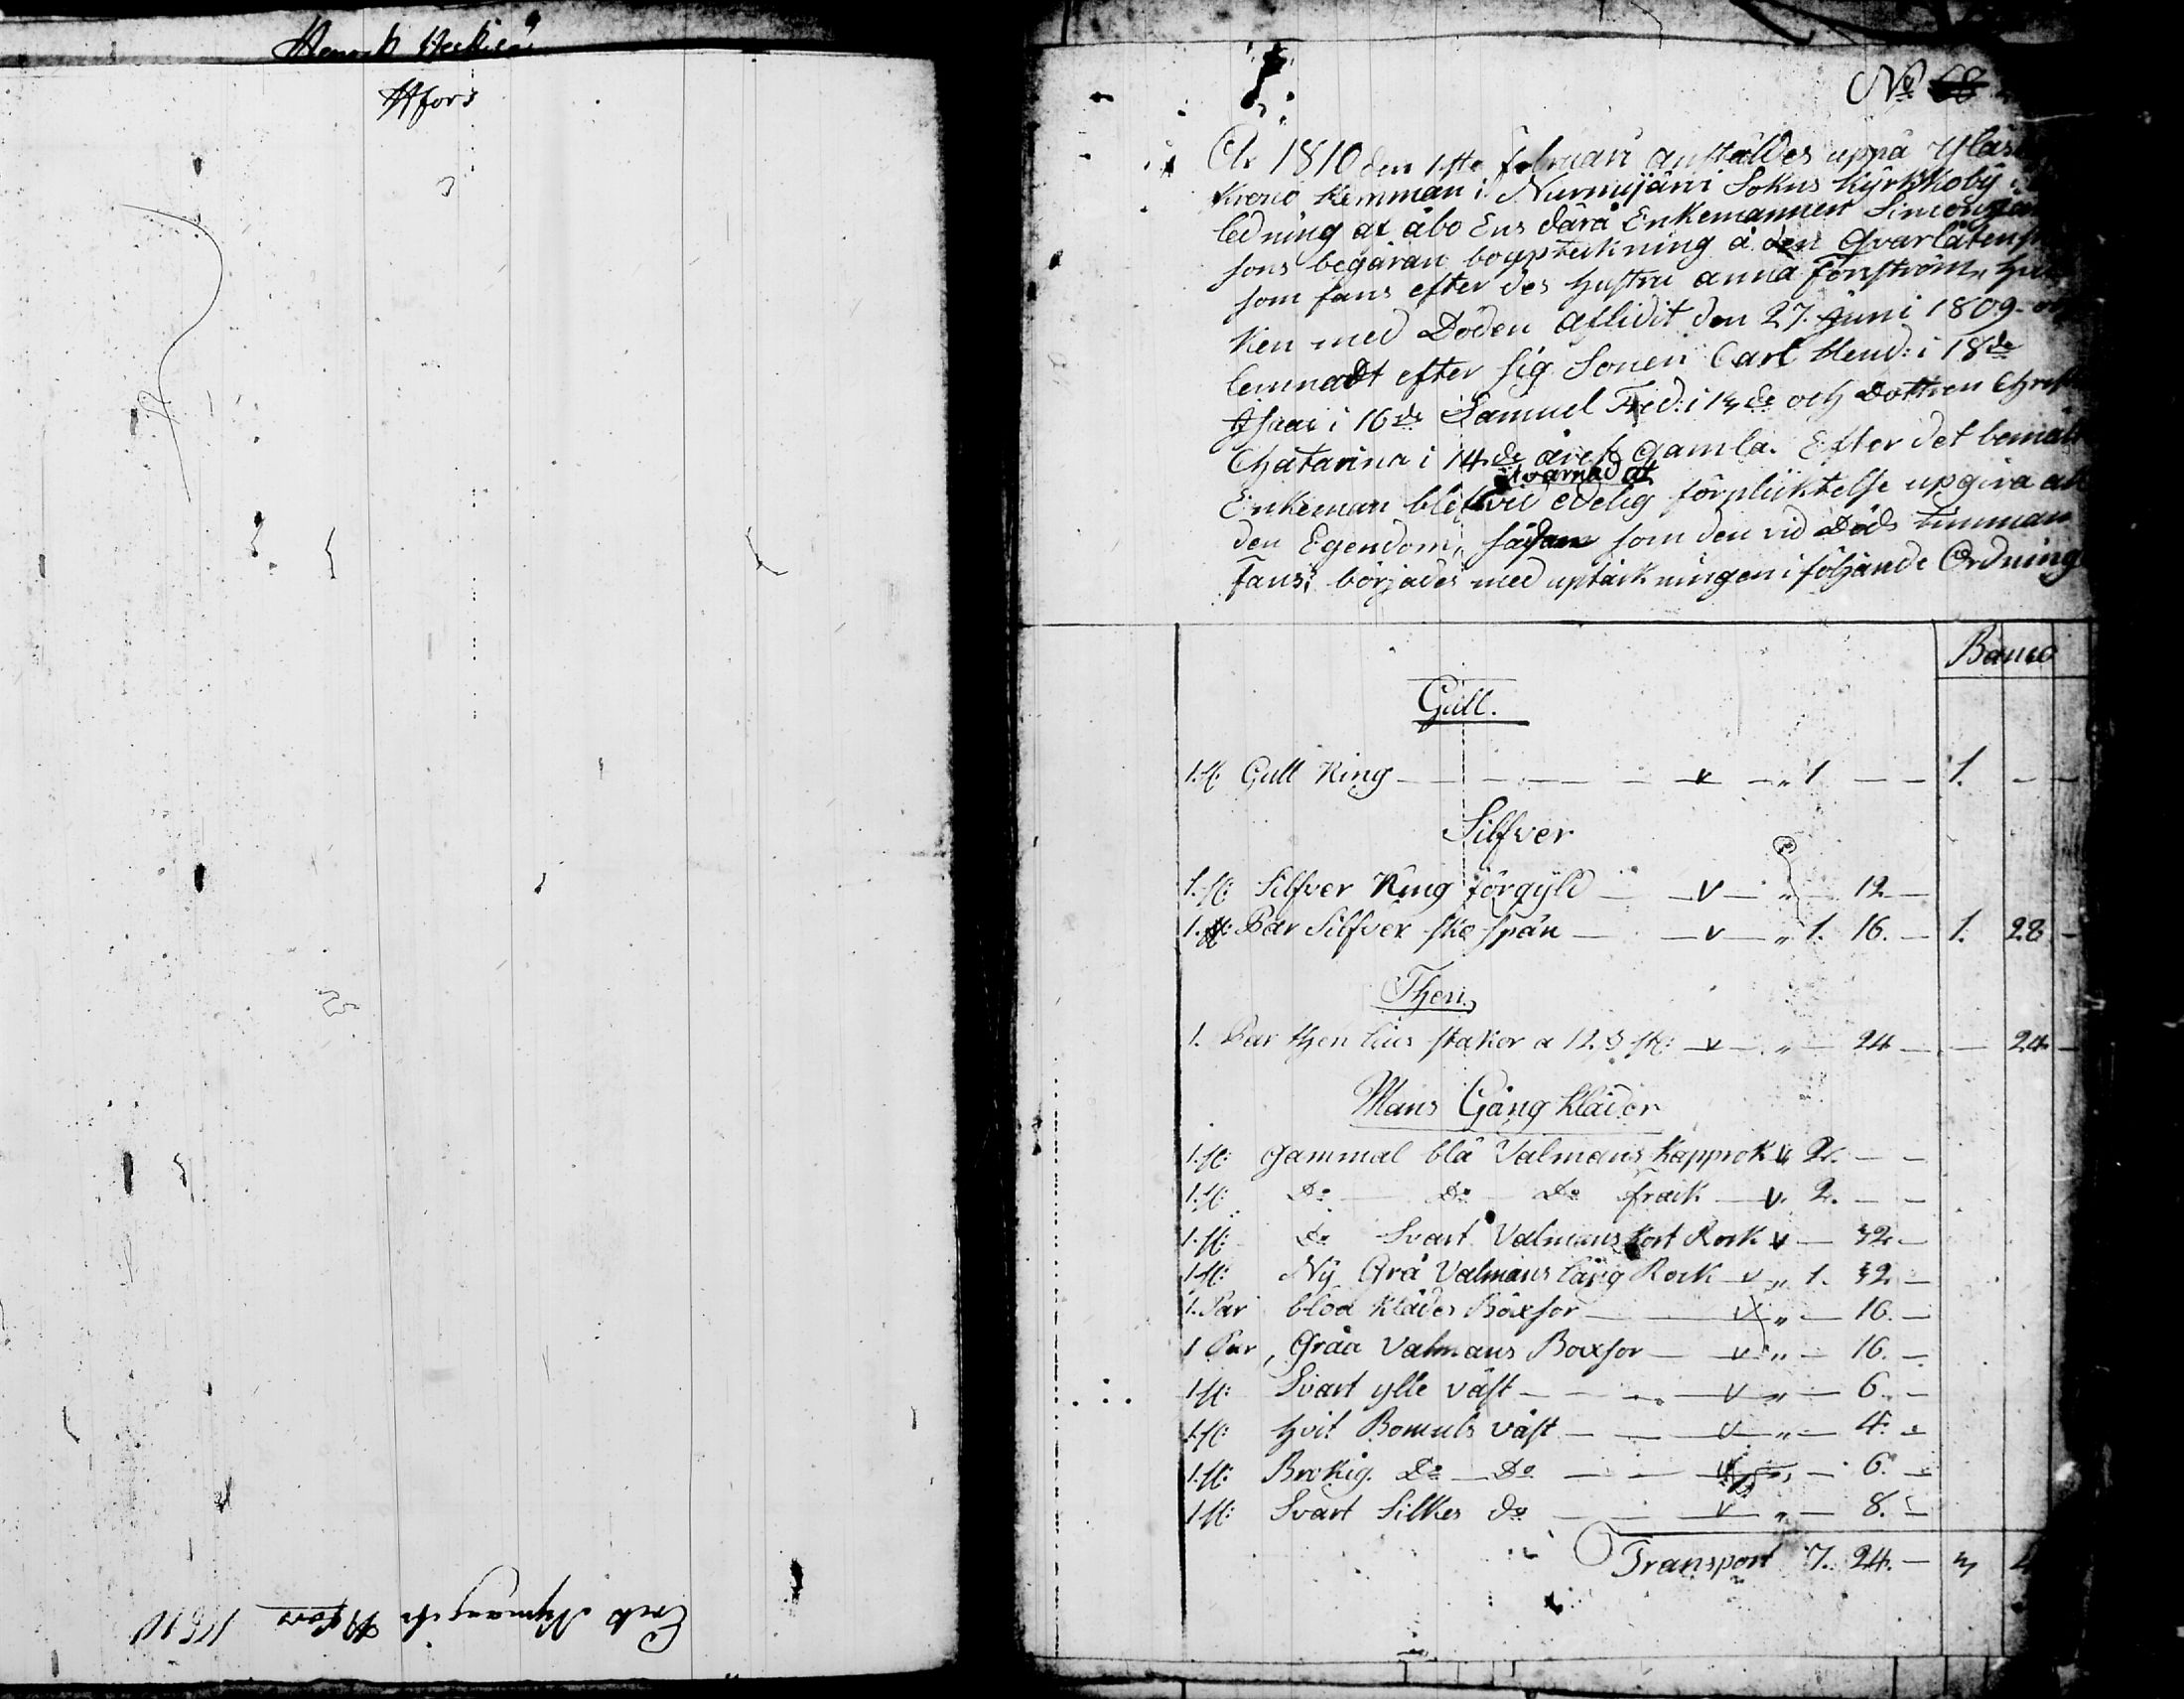 Hfors
No 68
År 1810 den 1sta februari anstäldes uppå
Krono Hemman i Nurmijärvi Sokns Kyrkkoby
ledning af åbo Ens därå Enkemannen Simon
sons begäran boupteckning å den Qvarlåtensk
som fans efter des hustru anna Forsström, hvil
ken med Döden aflidit den 27. Juni 1809. och
lemnadt efter sig Sonen Carl Hend: i 18de
Isaac i 16de Samuel Fred: i 13de och dottren Christ
Chatarina i 14de året gamla. Efter det bemält
varnad at
Enkeman blef vid edelig förpliktelse upgiva all
den Egendom, sådan som den vid Döds timman
fans; börjades med uptäckningen i följande Ordning
Banco
Gull.
1. st. Gull Ring — v — " 1 — — 1. — —
Silfver
1. st: Silfver Ring förgyld — v — " — 12 —
1. Par Silfver sko spän — v — " 1. 16. — 1. 28 —
Then
1. Par then lius stakor a 12 s st: — v — " — 24 — — 24 —
Mans Gång kläder
1. st: gammal blå Valmans Kapprok v 2. — —
1. st: Do — Do — Do frack — v. 2. — —
1. st: Do Svart Valmans kort Rock v — 32 —
1 st: Ny Grå Valmans lång Rock — v " 1. 32 —
1. Par bloa klädes Böxsor — v " — 16. —
1 Par, Gråa Valmans Boxsor — v " — 16. —
1 st: Svart ylle väst — — v " — 6. —
1. st: hvit Bomuls väst — — v " — 4. —
1. st: Brokig. Do — Do — — v " — 6. —
1 st: Svart Silkes do — — v " — 8. —
Transport 7. 24. — 3
Hfors 1810